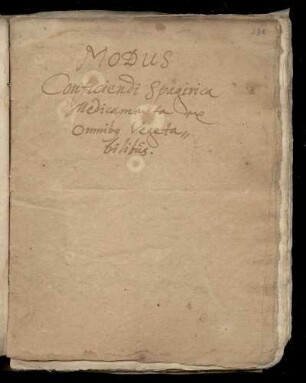 MODUS
Conficiendi Spagirica
Medicamenta ex
omnibq Vegeta„
bilibus.